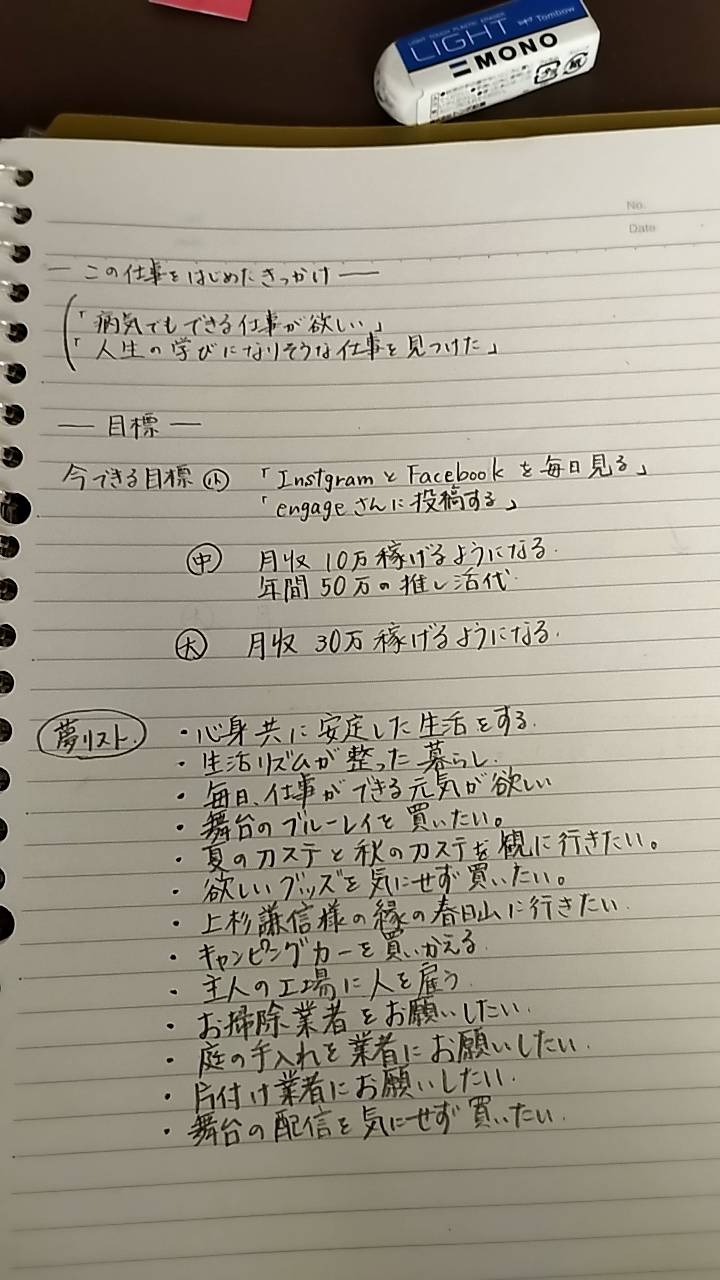 LIGHT
MONO
Tombow
No.
Date
― この仕事をはじめたきっかけ ―
「病気でもできる仕事が欲しい」
「人生の学びになりそうな仕事を見つけた」
― 目標 ―
今できる目標 小 「InstgramとFacebookを毎日見る」
「engageさんに投稿する」
中 月収10万稼げるようになる.
年間50万の推し活代.
大 月収 30万稼げるようになる.
夢リスト. ・心身共に安定した生活をする.
・生活リズムが整った暮らし.
・毎日、仕事ができる元気が欲しい
・舞台のブルーレイを買いたい。
・夏のカステと秋のカステを観に行きたい。
・欲しいグッズを気にせず買いたい。
・上杉謙信様の縁の春日山に行きたい.
・キャンピングカーを買いかえる.
・主人の工場に人を雇う.
・お掃除業者をお願いしたい.
・庭の手入れを業者にお願いしたい.
・片付け業者にお願いしたい.
・舞台の配信を気にせず買いたい.